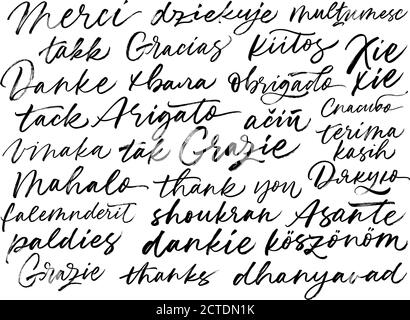 Merci dziekuje multumesc
takk Gracias kiitos Xie
Danke хвала obrigado xie
tack Arigato ačiū Спасибо
vinaka tak Grazie terima kasih
Mahalo thank you Дякую
falemnderit shoukran Asante
paldies dankie köszönöm
Grazie thanks dhanyavad
alamy
Image ID: 2CTDN1K
www.alamy.com